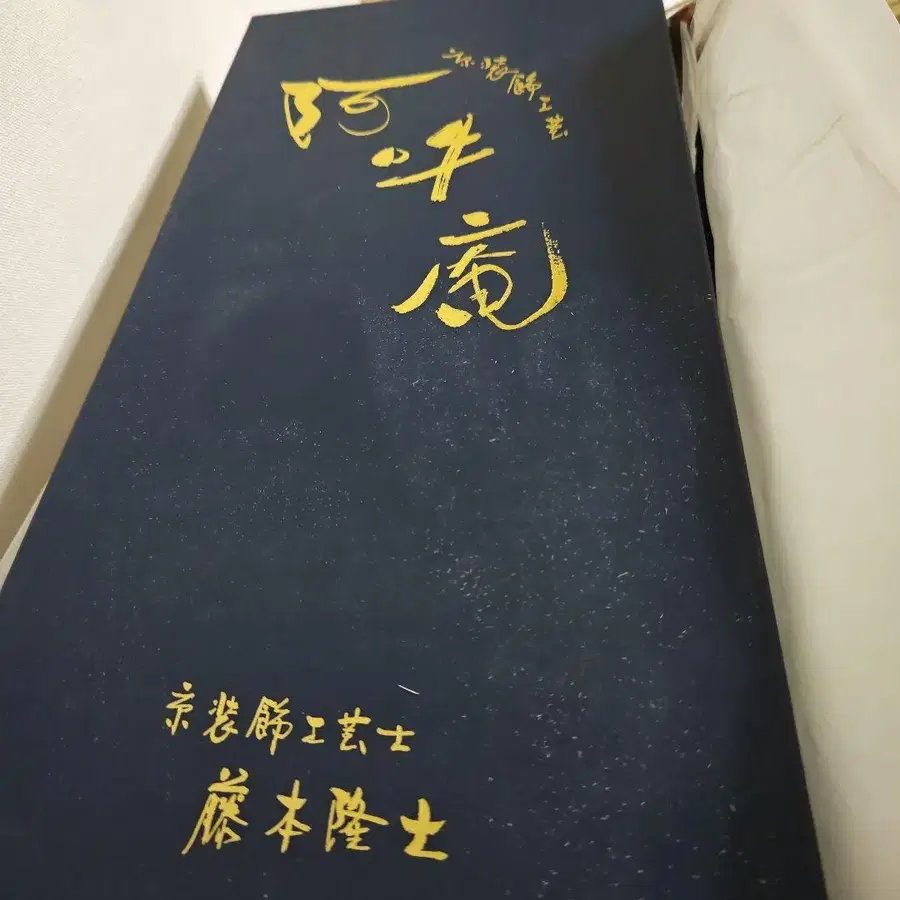 京装飾工芸
阿吽庵
京装飾工芸士
藤本隆士